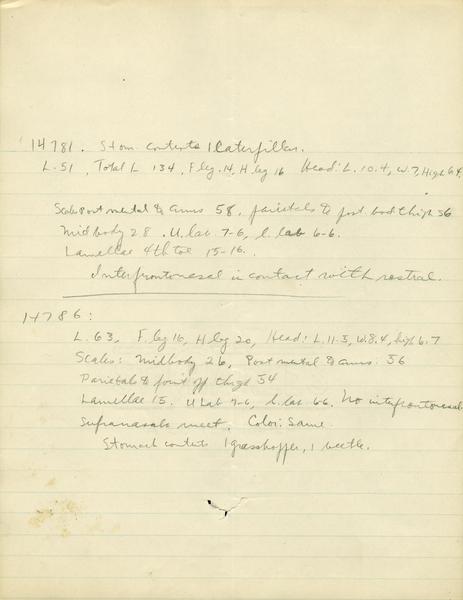 14781. Stom. contents 1 Caterpillar.
L. 51, Total L 134, F leg. 14, H leg 16 Head: L. 10.4, W. 7, High 6.4
Scales Post mental to anus 58, parietals to post. bod thigh 56
Midbody 28. U. lab 7-6, l. lab 6-6.
Lamellae 4th toe 15-16.
Interfrontonasal in contact with rostral.
14786:
L. 63, F. leg 16, H leg 20, Head: L. 11.3, W. 8.4, high 6.7
Scales: Midbody 26, Post mental to anus 56
Parietals to point off thigh 54
Lamellae 15. U Lab 7-6, l. lab 6 6. No interfrontonasal.
Supranasals meet. Color: Same
Stomach contents 1 grasshopper, 1 beetle.